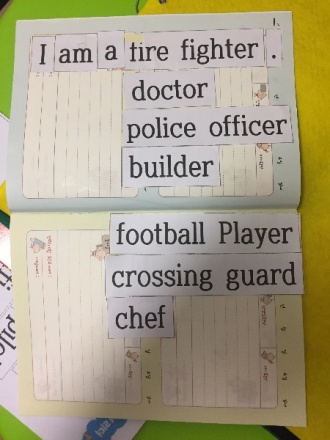 I am a fire fighter .
doctor
police officer
builder
football Player
crossing guard
chef